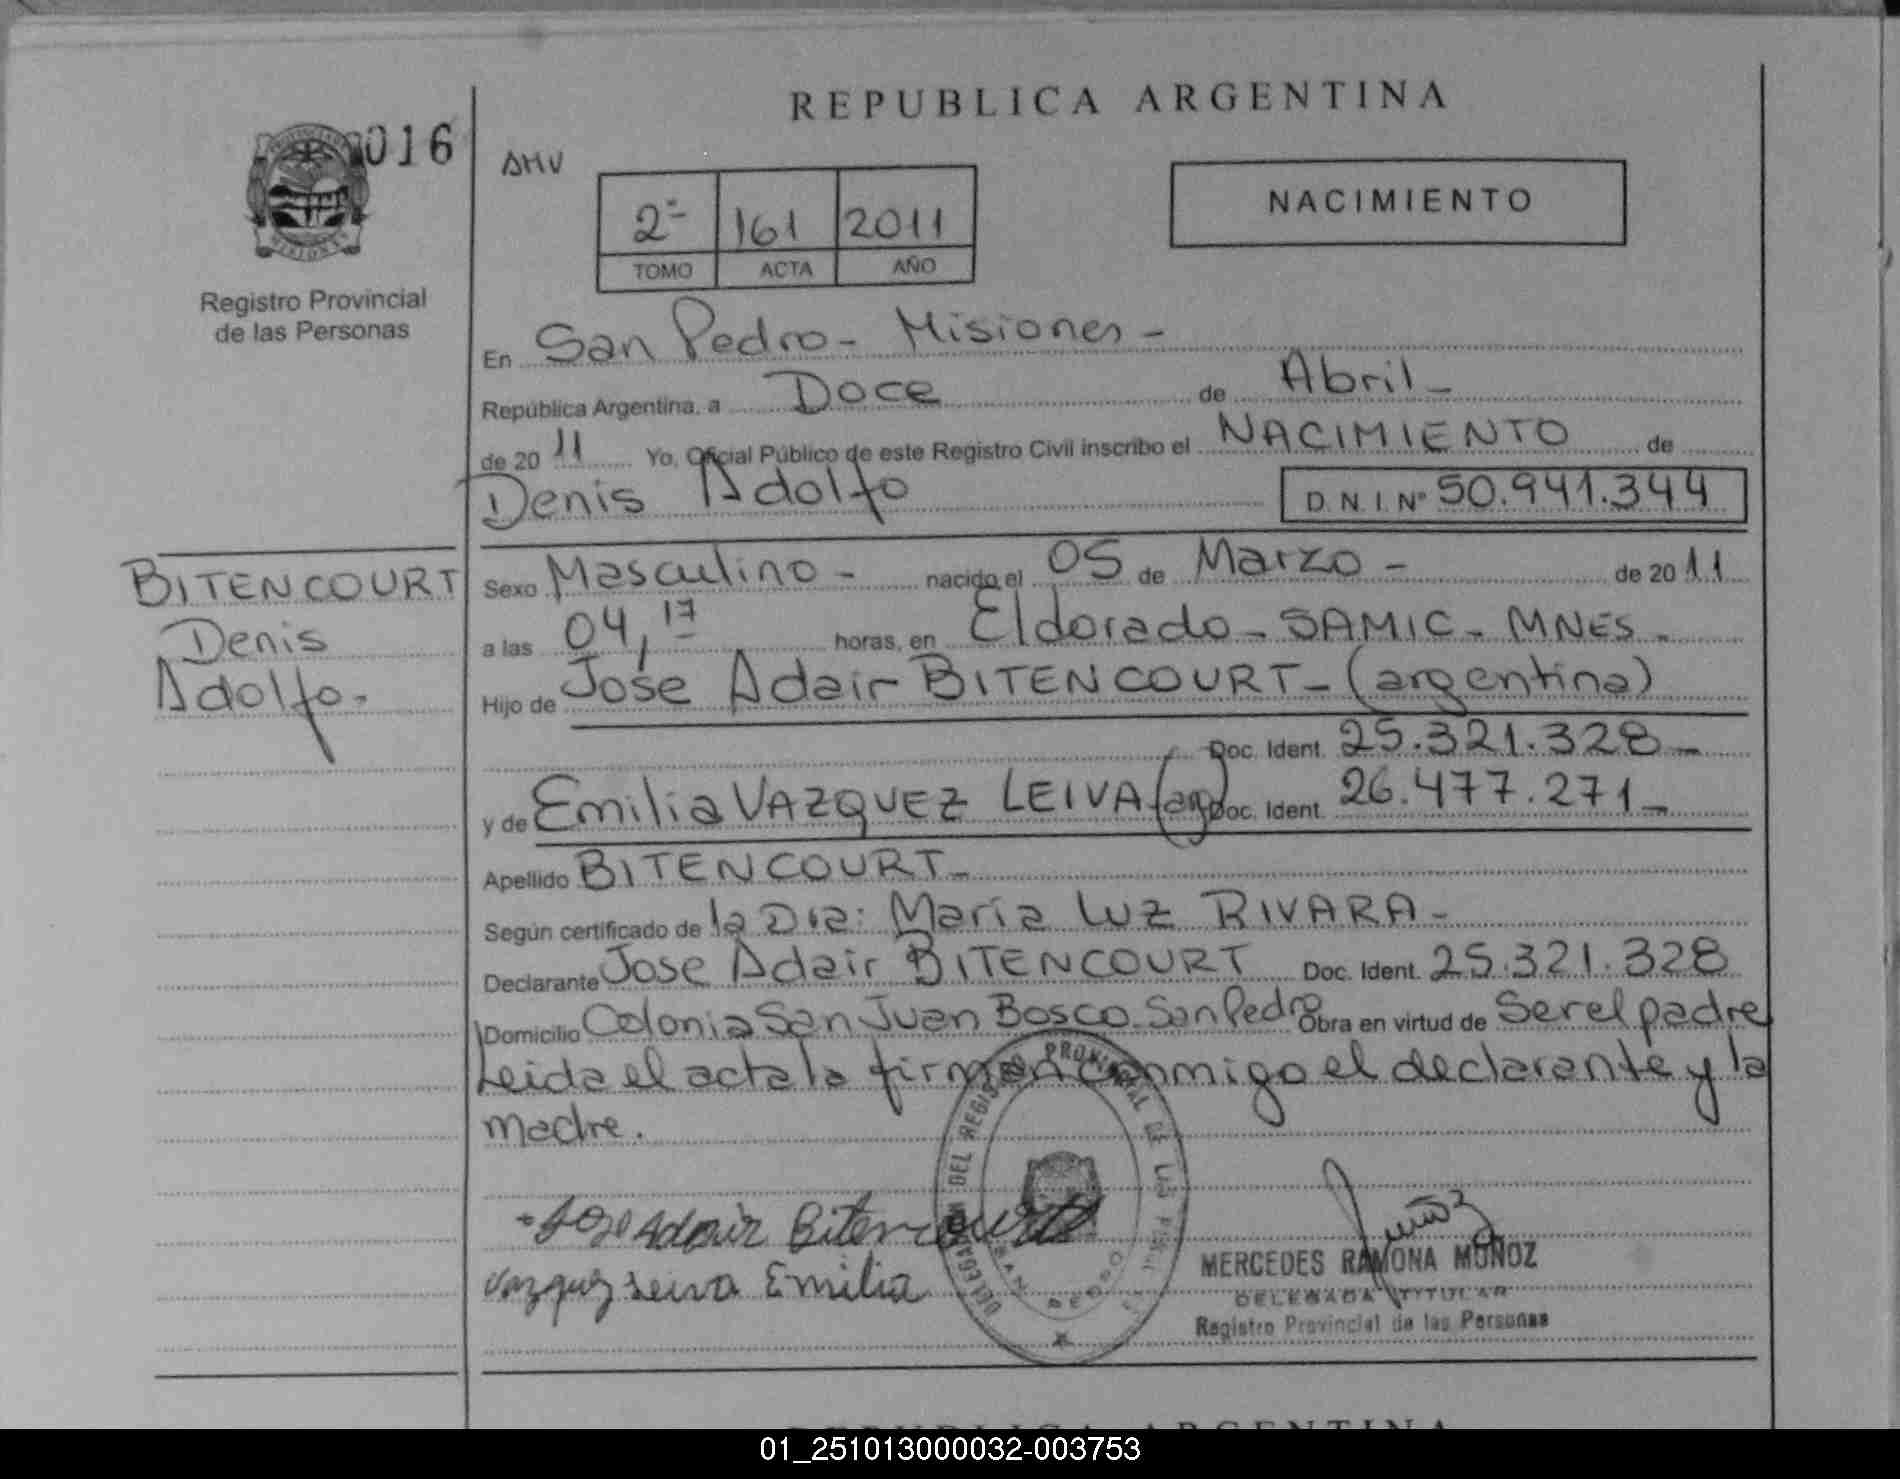 REPUBLICA ARGENTINA
016
AMV
2ª 161 2011
TOMO ACTA AÑO
NACIMIENTO
Registro Provincial
de las Personas
En San Pedro - Misiones -
República Argentina, a Doce de Abril -
de 2011 Yo, Oficial Público de este Registro Civil inscribo el NACIMIENTO de
Denis Adolfo D.N.I. Nº 50.941.344
BITENCOURT
Denis
Adolfo.
Sexo Masculino - nacido el 05 de Marzo - de 2011
a las 04,17 horas, en Eldorado - SAMIC - MNES -
Hijo de Jose Adair BITENCOURT - (argentina)
Doc. Ident. 25.321.328 -
y de Emilia VAZQUEZ LEIVA (arg) Doc. Ident. 26.477.271 -
Apellido BITENCOURT -
Según certificado de la Dra: María Luz RIVARA -
Declarante Jose Adair BITENCOURT Doc. Ident. 25.321.328
Domicilio Colonia San Juan Bosco. San Pedro Obra en virtud de Ser el padre
Leida el acta la firman conmigo el declarante y la
madre.
Jose Adair Bitencourt
Vazquez Leiva Emilia
Muñoz
MERCEDES RAMONA MUÑOZ
DELEGADA TITULAR
Registro Provincial de las Personas
DEL REGISTRO PROVINCIAL DE LAS
SAN PEDRO
REPUBLICA ARGENTINA
01_251013000032-003753